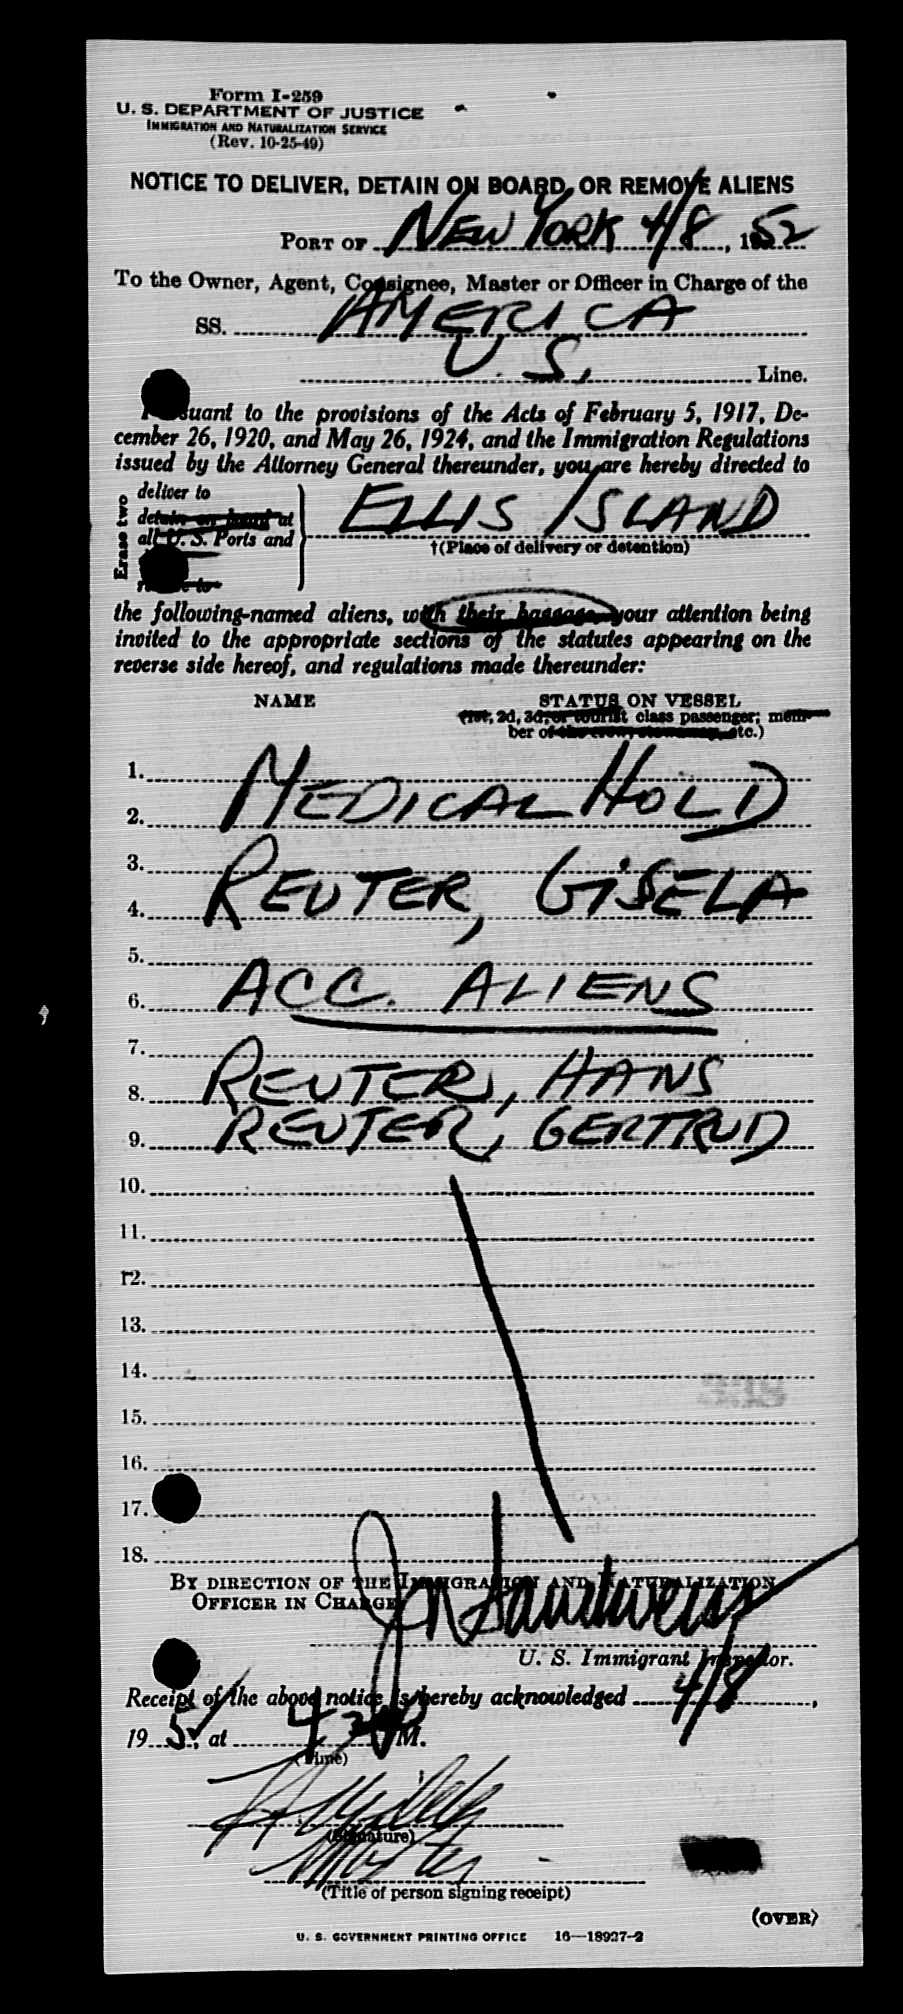 Form I-259
U. S. DEPARTMENT OF JUSTICE
IMMIGRATION AND NATURALIZATION SERVICE
(Rev. 10-25-49)
NOTICE TO DELIVER, DETAIN ON BOARD, OR REMOVE ALIENS
PORT OF NEW YORK 4/8, 1952
To the Owner, Agent, Consignee, Master or Officer in Charge of the
SS. AMERICA
U. S. Line.
Pursuant to the provisions of the Acts of February 5, 1917, De-
cember 26, 1920, and May 26, 1924, and the Immigration Regulations
issued by the Attorney General thereunder, you are hereby directed to
Erase two
deliver to
detain on board at
all U. S. Ports and
ELLIS ISLAND
†(Place of delivery or detention)
the following-named aliens, with their baggage your attention being
invited to the appropriate sections of the statutes appearing on the
reverse side hereof, and regulations made thereunder:
NAME STATUS ON VESSEL
(1st, 2d, 3d, or tourist class passenger; mem-
ber of the crew, stowaway, etc.)
1.
2. MEDICAL HOLD
3.
4. REUTER, GISELA
5.
6. ACC. ALIENS
7.
8. REUTER, HANS
9. REUTER, GERTRUD
10.
11.
12.
13.
14.
15.
16.
17.
18.
BY DIRECTION OF THE IMMIGRATION AND NATURALIZATION
OFFICER IN CHARGE
U. S. Immigrant Inspector.
Receipt of the above notice is hereby acknowledged 4/8,
19 5, at M.
(Time)
(Signature)
Master
(Title of person signing receipt)
(OVER)
U. S. GOVERNMENT PRINTING OFFICE 16—18927-2